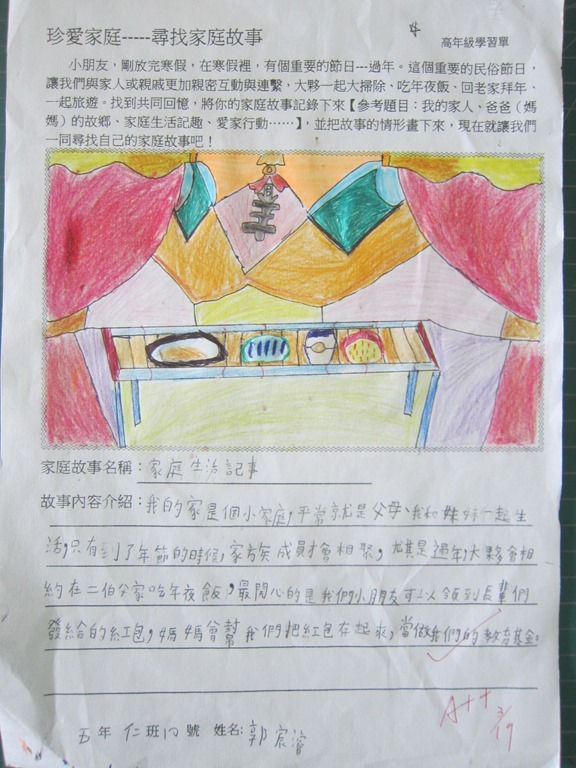 珍愛家庭-----尋找家庭故事
高年級學習單
小朋友，剛放完寒假，在寒假裡，有個重要的節日---過年。這個重要的民俗節日，
讓我們與家人或親戚更加親密互動與連繫，大夥一起大掃除、吃年夜飯、回老家拜年、
一起旅遊。找到共同回憶，將你的家庭故事記錄下來【參考題目：我的家人、爸爸(媽
媽)的故鄉、家庭生活記趣、愛家行動……】，並把故事的情形畫下來，現在就讓我們
一同尋找自己的家庭故事吧！
家庭故事名稱：家庭生活記事
故事內容介紹：我的家是個小家庭，平常就是父母、我和妹妹一起生
活，只有到了年節的時候，家族成員才會相聚，尤其是過年，大夥會相
約在二伯公家吃年夜飯，最開心的是我們小朋友可以領到長輩們
發給的紅包，媽媽會幫我們把紅包存起來，當做我們的教育基金。
A++
3/19
五年 仁班 號 姓名：郭宸